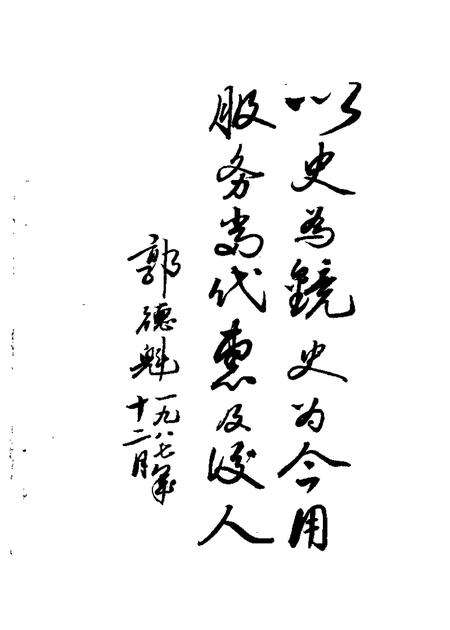 以史为鏡史为今用
服务当代惠及后人
郭德魁一九八七年
十二月